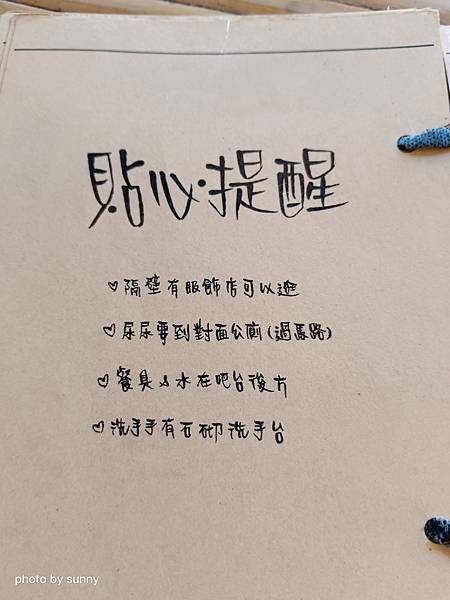 貼心提醒
♡隔壁有服飾店可以逛
♡尿尿要到對面公廁(過馬路)
♡餐具&水在吧台後方
♡洗手手有石砌洗手台
photo by sunny